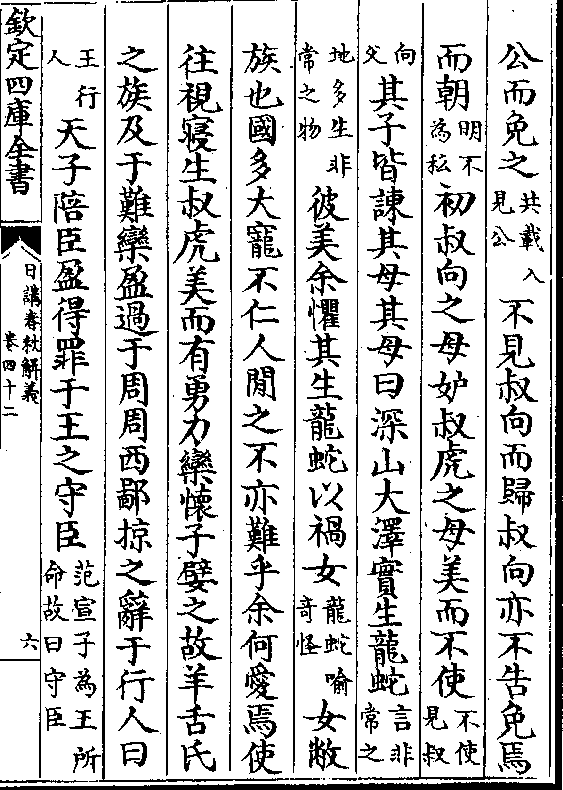 公而免之共載入見公不見叔向而歸叔向亦不告免焉
而朝明不為私初叔向之母妒叔虎之母美而不使不使見叔
向父其子皆諫其母其母曰深山大澤實生龍蛇言非常之
地多生非常之物彼美余懼其生龍蛇以禍女龍蛇喻奇怪女敝
族也國多大寵不仁人閒之不亦難乎余何愛焉使
往視寝生叔虎美而有勇力欒懷子嬖之故羊舌氏
之族及于難欒盈過于周周西鄙掠之辭于行人曰
王行人天子陪臣盈得罪于王之守臣范宣子為王所命故曰守臣
欽定四庫全書
日講春秋解義
卷四十二
六